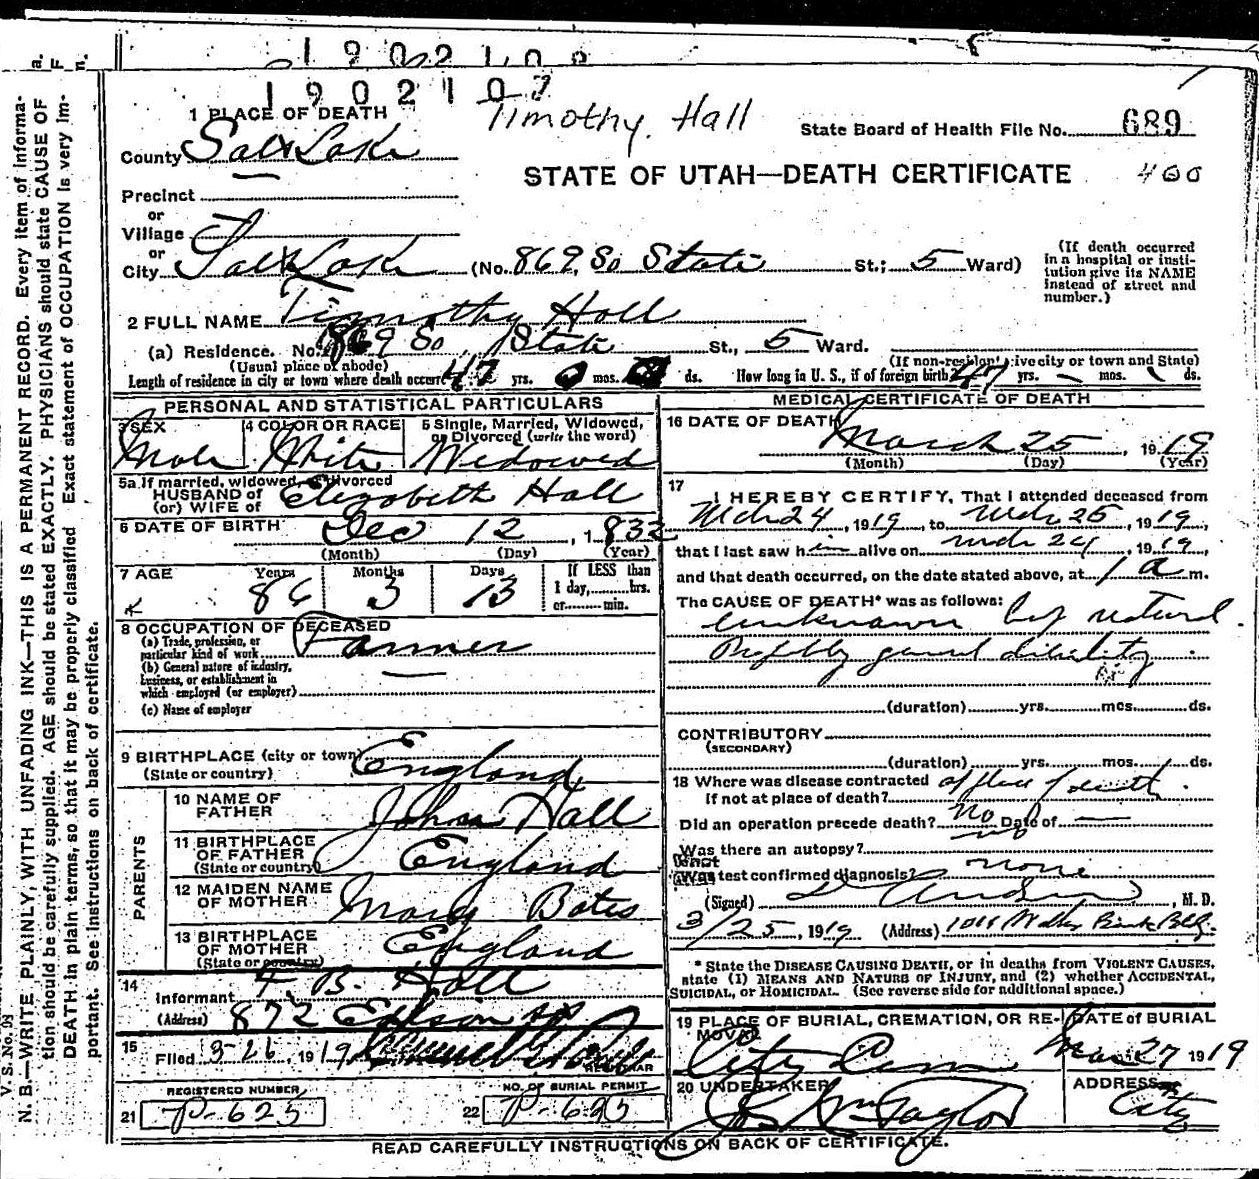 1902108
1902107
Timothy Hall
State Board of Health File No. 689
1 PLACE OF DEATH
County Salt Lake
STATE OF UTAH—DEATH CERTIFICATE 400
Precinct
or
Village
or
City Salt Lake (No. 869 So State St.; 5 Ward)
(If death occurred in a hospital or institution give its NAME instead of street and number.)
2 FULL NAME Timothy Hall
(a) Residence. No. 869 So State St., 5 Ward.
(Usual place of abode) (If non-resident give city or town and State)
Length of residence in city or town where death occurred 47 yrs. 0 mos. ds. How long in U. S., if of foreign birth 47 yrs. – mos. ds.
PERSONAL AND STATISTICAL PARTICULARS
3 SEX Male
4 COLOR OR RACE White
5 Single, Married, Widowed, or Divorced (write the word) Widowed
5a If married, widowed, or divorced
HUSBAND of
(or) WIFE of Elizabeth Hall
6 DATE OF BIRTH Dec 12, 1832
(Month) (Day) (Year)
7 AGE Years 86 Months 3 Days 13 If LESS than 1 day, hrs. or min.
8 OCCUPATION OF DECEASED
(a) Trade, profession, or particular kind of work Farmer
(b) General nature of industry, business, or establishment in which employed (or employer)
(c) Name of employer
9 BIRTHPLACE (city or town)
(State or country) England
PARENTS
10 NAME OF FATHER John Hall
11 BIRTHPLACE OF FATHER
(State or country) England
12 MAIDEN NAME OF MOTHER Mary Bates
13 BIRTHPLACE OF MOTHER
(State or country) England
14
Informant F. B. Hall
(Address) 872 Edison St
15 Filed 3-26, 1919
REGISTRAR
REGISTERED NUMBER
21 P-625
NO. OF BURIAL PERMIT
22 P-625
MEDICAL CERTIFICATE OF DEATH
16 DATE OF DEATH March 25, 1919
(Month) (Day) (Year)
17 I HEREBY CERTIFY, That I attended deceased from
Mch 24, 1919, to Mch 25, 1919,
that I last saw him alive on Mch 24, 1919,
and that death occurred, on the date stated above, at 1 a m.
The CAUSE OF DEATH* was as follows:
unknown natural
general debility
(duration) yrs. mos. ds.
CONTRIBUTORY
(SECONDARY)
(duration) yrs. mos. ds.
18 Where was disease contracted
If not at place of death? at place of death.
Did an operation precede death? No Date of —
Was there an autopsy? no
What test confirmed diagnosis? none
(Signed) , M. D.
3/25, 1919 (Address) 1011 Walker Bank Bldg.
* State the DISEASE CAUSING DEATH, or in deaths from VIOLENT CAUSES, state (1) MEANS AND NATURE OF INJURY, and (2) whether ACCIDENTAL, SUICIDAL, or HOMICIDAL. (See reverse side for additional space.)
19 PLACE OF BURIAL, CREMATION, OR REMOVAL City Cem
DATE OF BURIAL Mar 27 1919
20 UNDERTAKER Jos Wm Taylor
ADDRESS City
READ CAREFULLY INSTRUCTIONS ON BACK OF CERTIFICATE.
V. S. No. 93
N. B.—WRITE PLAINLY, WITH UNFADING INK—THIS IS A PERMANENT RECORD. Every item of information should be carefully supplied. AGE should be stated EXACTLY. PHYSICIANS should state CAUSE OF DEATH in plain terms, so that it may be properly classified. Exact statement of OCCUPATION is very important. See instructions on back of certificate.